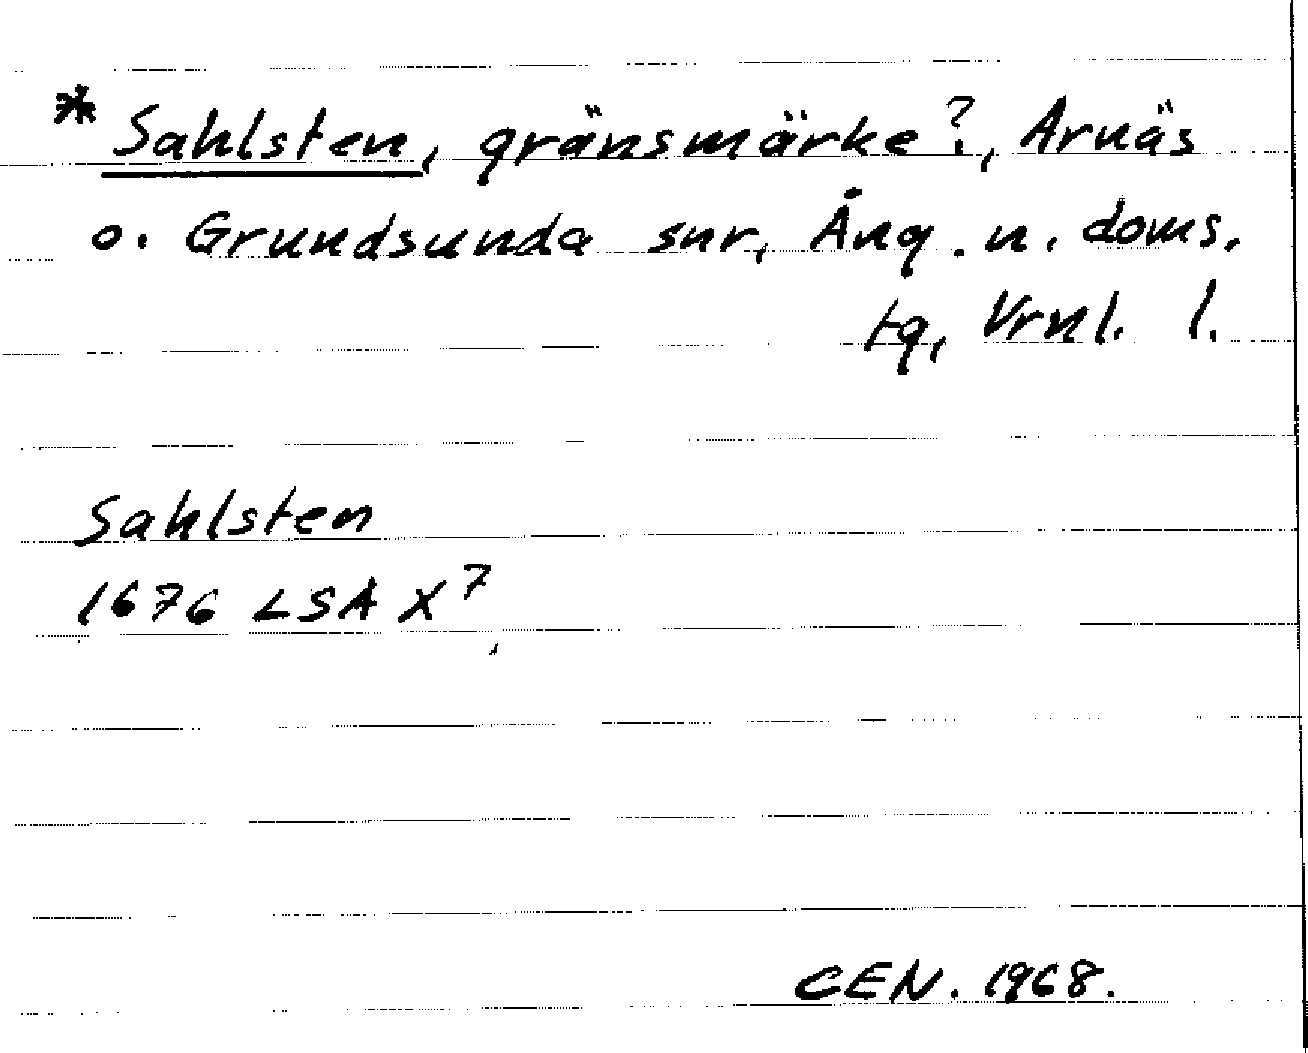 * Sahlsten, gränsmärke?, Arnäs
o. Grundsunda snr, Ång. n. doms.
tg, Vrnl. l.
Sahlsten
1676 LSA X 7
CEN. 1968.